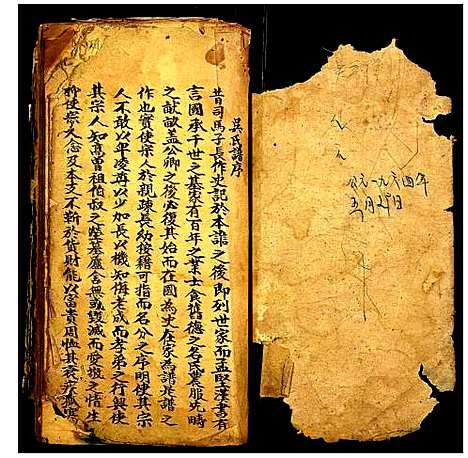 吴氏譜序
昔司馬子長作史記於本譜之後即列世家而孟堅漢書有
言國承千世之基家有百年之業士食舊德之名氏農服先時
之畎畝盖公卿之後必復其始而在國為史在家為譜譜之
作也實使宗人於親疎長幼後籍可指而名分之序明使其宗
人不敢以卑凌尊以少加長以機知侮老成而孝弟之行興使
其宗人知高曾祖伯叔之塋墓廬舍無或毀滅而愛敬之情生
使宗人念及本支不斬於貨財能以富貴周恤其
公元一九六四年
五月
日